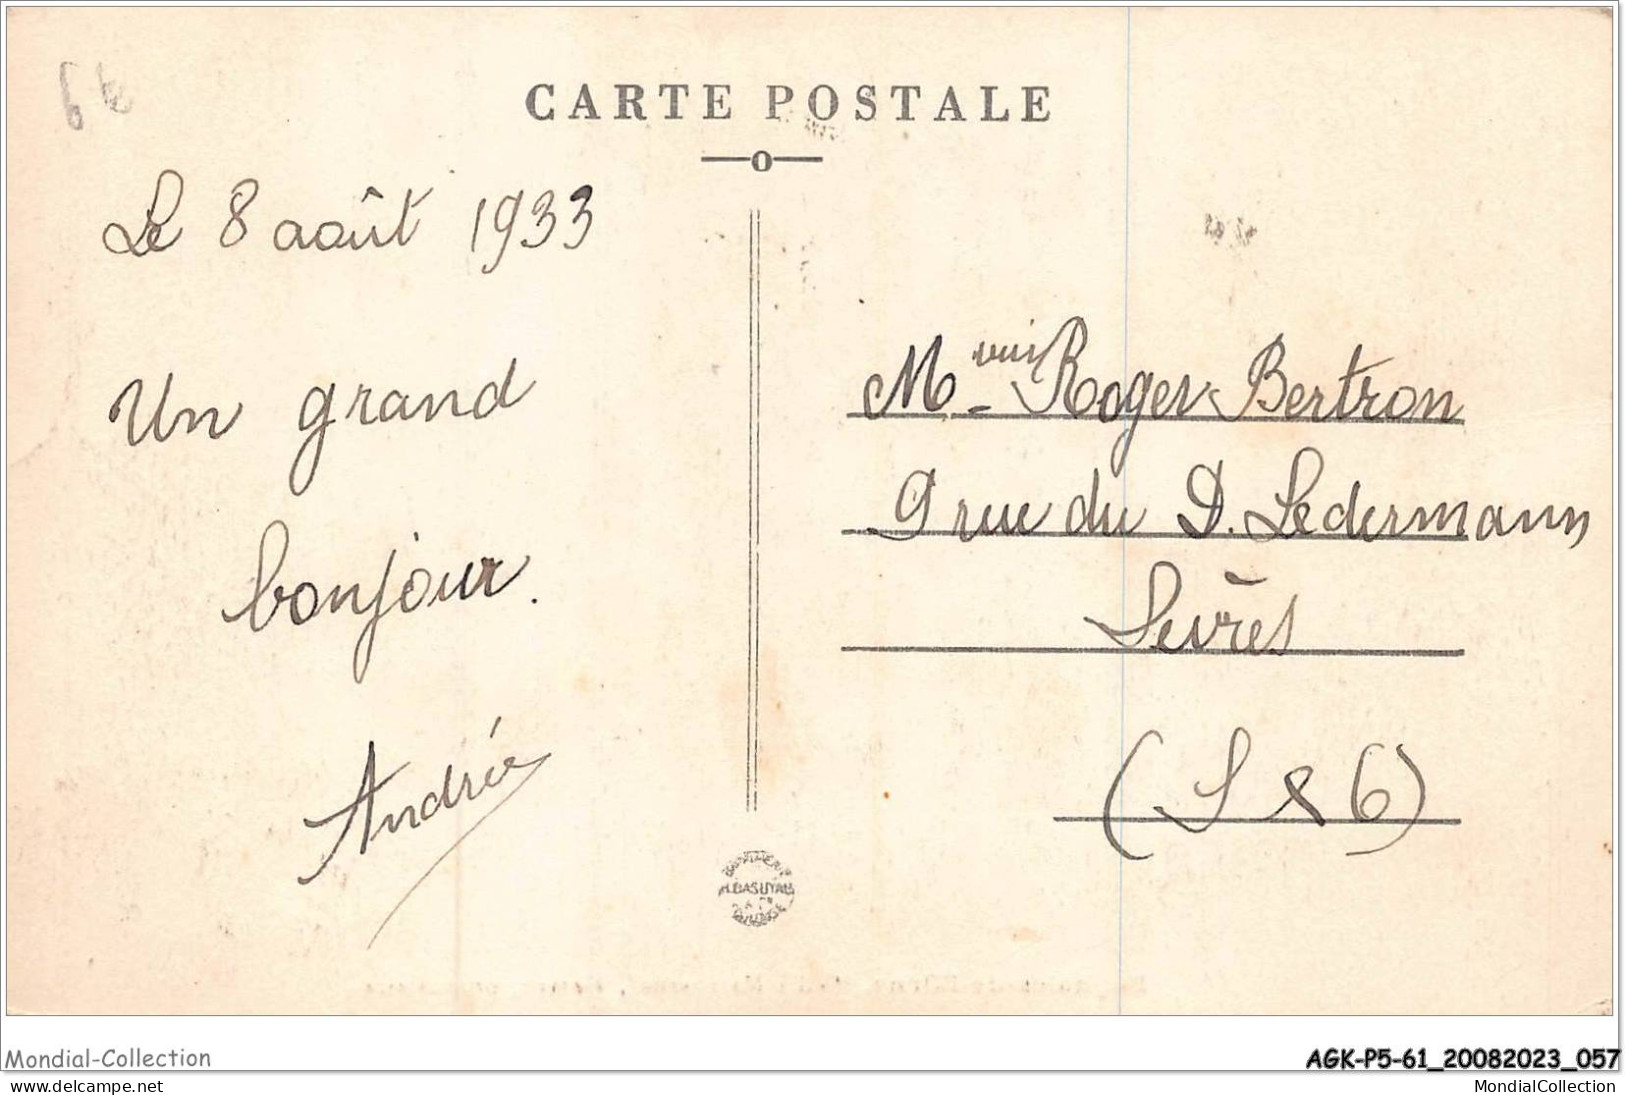 6 €
CARTE POSTALE
Le 8 août 1933
Un grand
bonjour.
Andrée
M - Roger Bertron
9 rue du D. Ledermann
Sèvres
(S & 6)
Mondial-Collection
AGK-P5-61_20082023_057
www.delcampe.net
MondialCollection